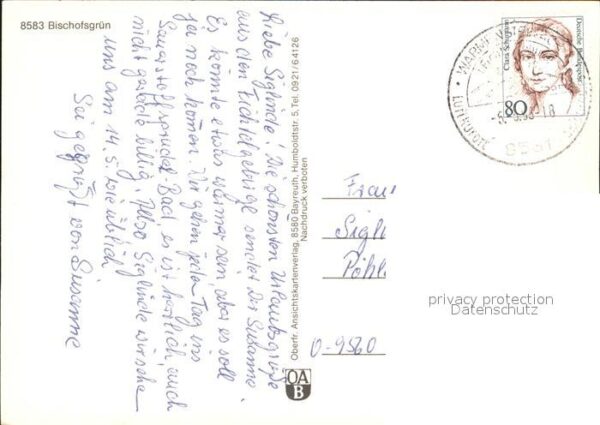 8583 Bischofsgrün
Liebe Siglinde! Die schönsten Urlaubsgrüße
aus dem Fichtelgebirge sendet Dir Susanne
Es könnte etwas wärmer sein, aber es soll
ja noch kommen. Wir gehen jeden Tag ins
Sauerstoffsprudel-Bad, es ist herrlich, auch
nicht gerade billig. Also Siglinde wir sehen
uns am 14.5. wie üblich
Sei gegrüßt von Susanne
Oberfr. Ansichtskartenverlag, 8580 Bayreuth, Humboldtstr. 5, Tel. 0921/64126
Nachdruck verboten
OA
B
Clara Schumann
Deutsche Bundespost
80
LUFTKURORT
Frau
Sigl
Pöhl
O-9560
privacy protection
Datenschutz